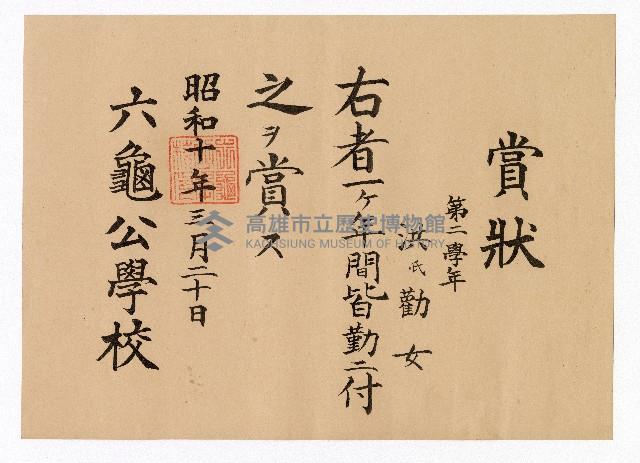 賞狀
第二學年
洪氏勸女
右者一ヶ年間皆勤ニ付
之ヲ賞ス
昭和十年三月二十日
六龜公學校
高雄市立歷史博物館
KAOHSIUNG MUSEUM OF HISTORY